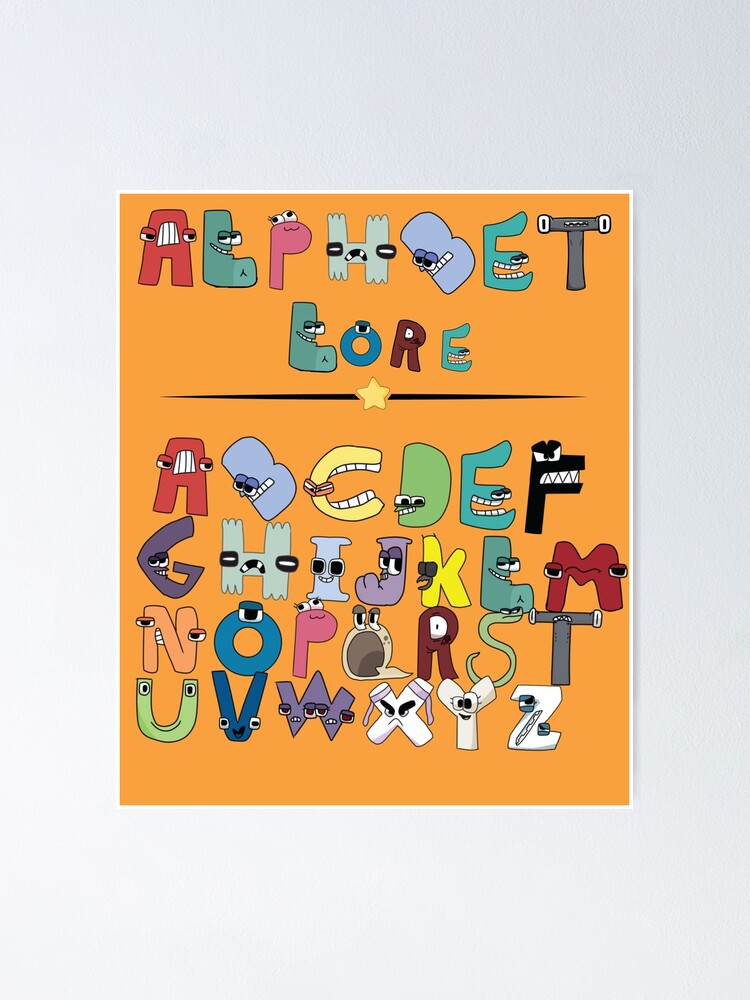 ALPHBET
LORE
ABCDEF
GHIJKLM
NOPQRST
UVWXYZ